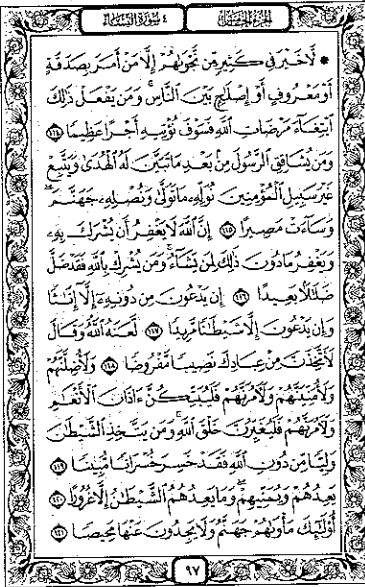 الجزء الخامس
٤ سورة النساء
* لَّا خَيْرَ فِي كَثِيرٍ مِّن نَّجْوَىٰهُمْ إِلَّا مَنْ أَمَرَ بِصَدَقَةٍ
أَوْ مَعْرُوفٍ أَوْ إِصْلَٰحٍ بَيْنَ النَّاسِ وَمَن يَفْعَلْ ذَٰلِكَ
ابْتِغَاءَ مَرْضَاتِ اللَّهِ فَسَوْفَ نُؤْتِيهِ أَجْرًا عَظِيمًا ١١٤
وَمَن يُشَاقِقِ الرَّسُولَ مِن بَعْدِ مَا تَبَيَّنَ لَهُ الْهُدَىٰ وَيَتَّبِعْ
غَيْرَ سَبِيلِ الْمُؤْمِنِينَ نُوَلِّهِ مَا تَوَلَّىٰ وَنُصْلِهِ جَهَنَّمَ
وَسَاءَتْ مَصِيرًا ١١٥ إِنَّ اللَّهَ لَا يَغْفِرُ أَن يُشْرَكَ بِهِ
وَيَغْفِرُ مَا دُونَ ذَٰلِكَ لِمَن يَشَاءُ وَمَن يُشْرِكْ بِاللَّهِ فَقَدْ ضَلَّ
ضَلَٰلًا بَعِيدًا ١١٦ إِن يَدْعُونَ مِن دُونِهِ إِلَّا إِنَٰثًا
وَإِن يَدْعُونَ إِلَّا شَيْطَٰنًا مَّرِيدًا ١١٧ لَّعَنَهُ اللَّهُ وَقَالَ
لَأَتَّخِذَنَّ مِنْ عِبَادِكَ نَصِيبًا مَّفْرُوضًا ١١٨ وَلَأُضِلَّنَّهُمْ
وَلَأُمَنِّيَنَّهُمْ وَلَءَامُرَنَّهُمْ فَلَيُبَتِّكُنَّ ءَاذَانَ الْأَنْعَٰمِ
وَلَءَامُرَنَّهُمْ فَلَيُغَيِّرُنَّ خَلْقَ اللَّهِ وَمَن يَتَّخِذِ الشَّيْطَٰنَ
وَلِيًّا مِّن دُونِ اللَّهِ فَقَدْ خَسِرَ خُسْرَانًا مُّبِينًا ١١٩
يَعِدُهُمْ وَيُمَنِّيهِمْ وَمَا يَعِدُهُمُ الشَّيْطَٰنُ إِلَّا غُرُورًا ١٢٠
أُولَٰئِكَ مَأْوَىٰهُمْ جَهَنَّمُ وَلَا يَجِدُونَ عَنْهَا مَحِيصًا ١٢١
٩٧